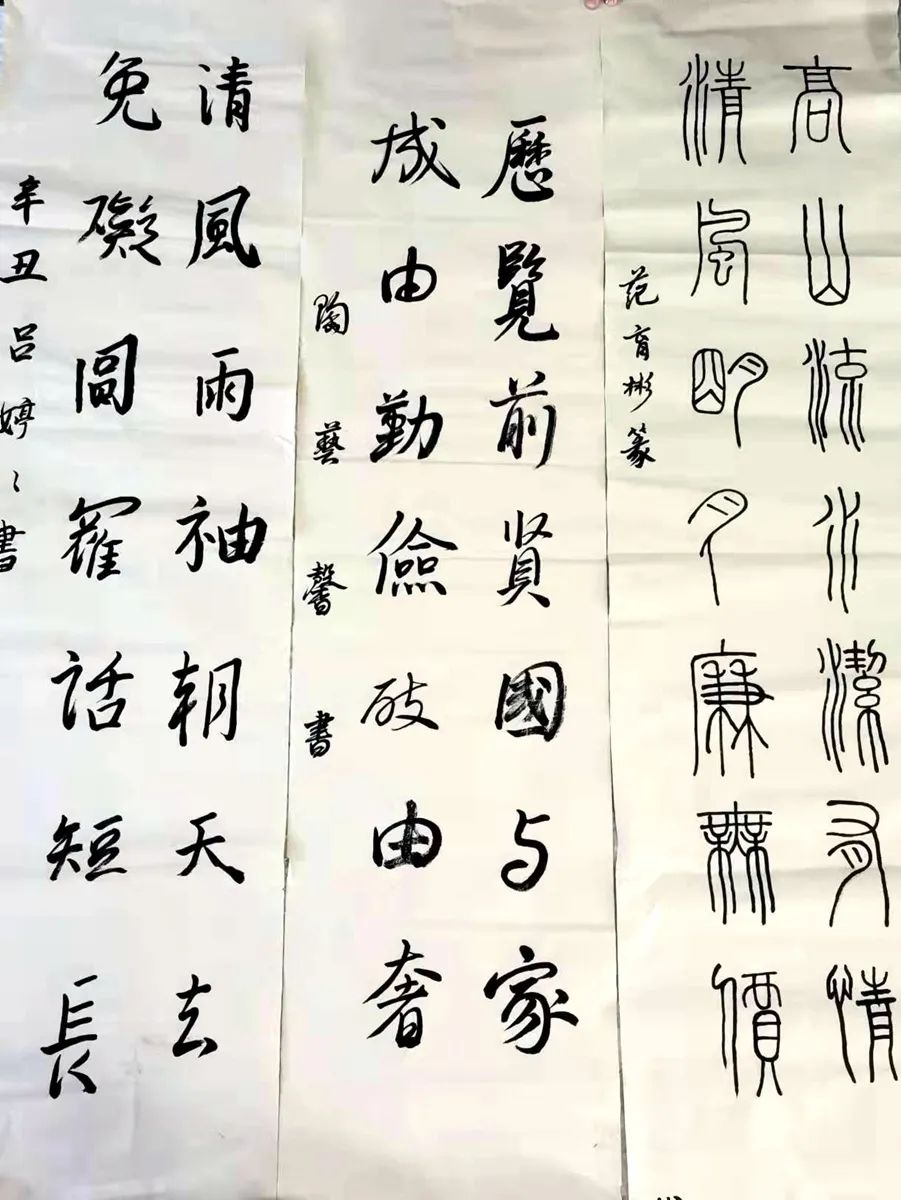 高山流水潔有情
清風明月廉無價
范育彬篆
歷覽前贤國与家
成由勤儉破由奢
陶藝馨書
清風雨袖朝天去
免礙羅話短長
辛丑吕婷〻書